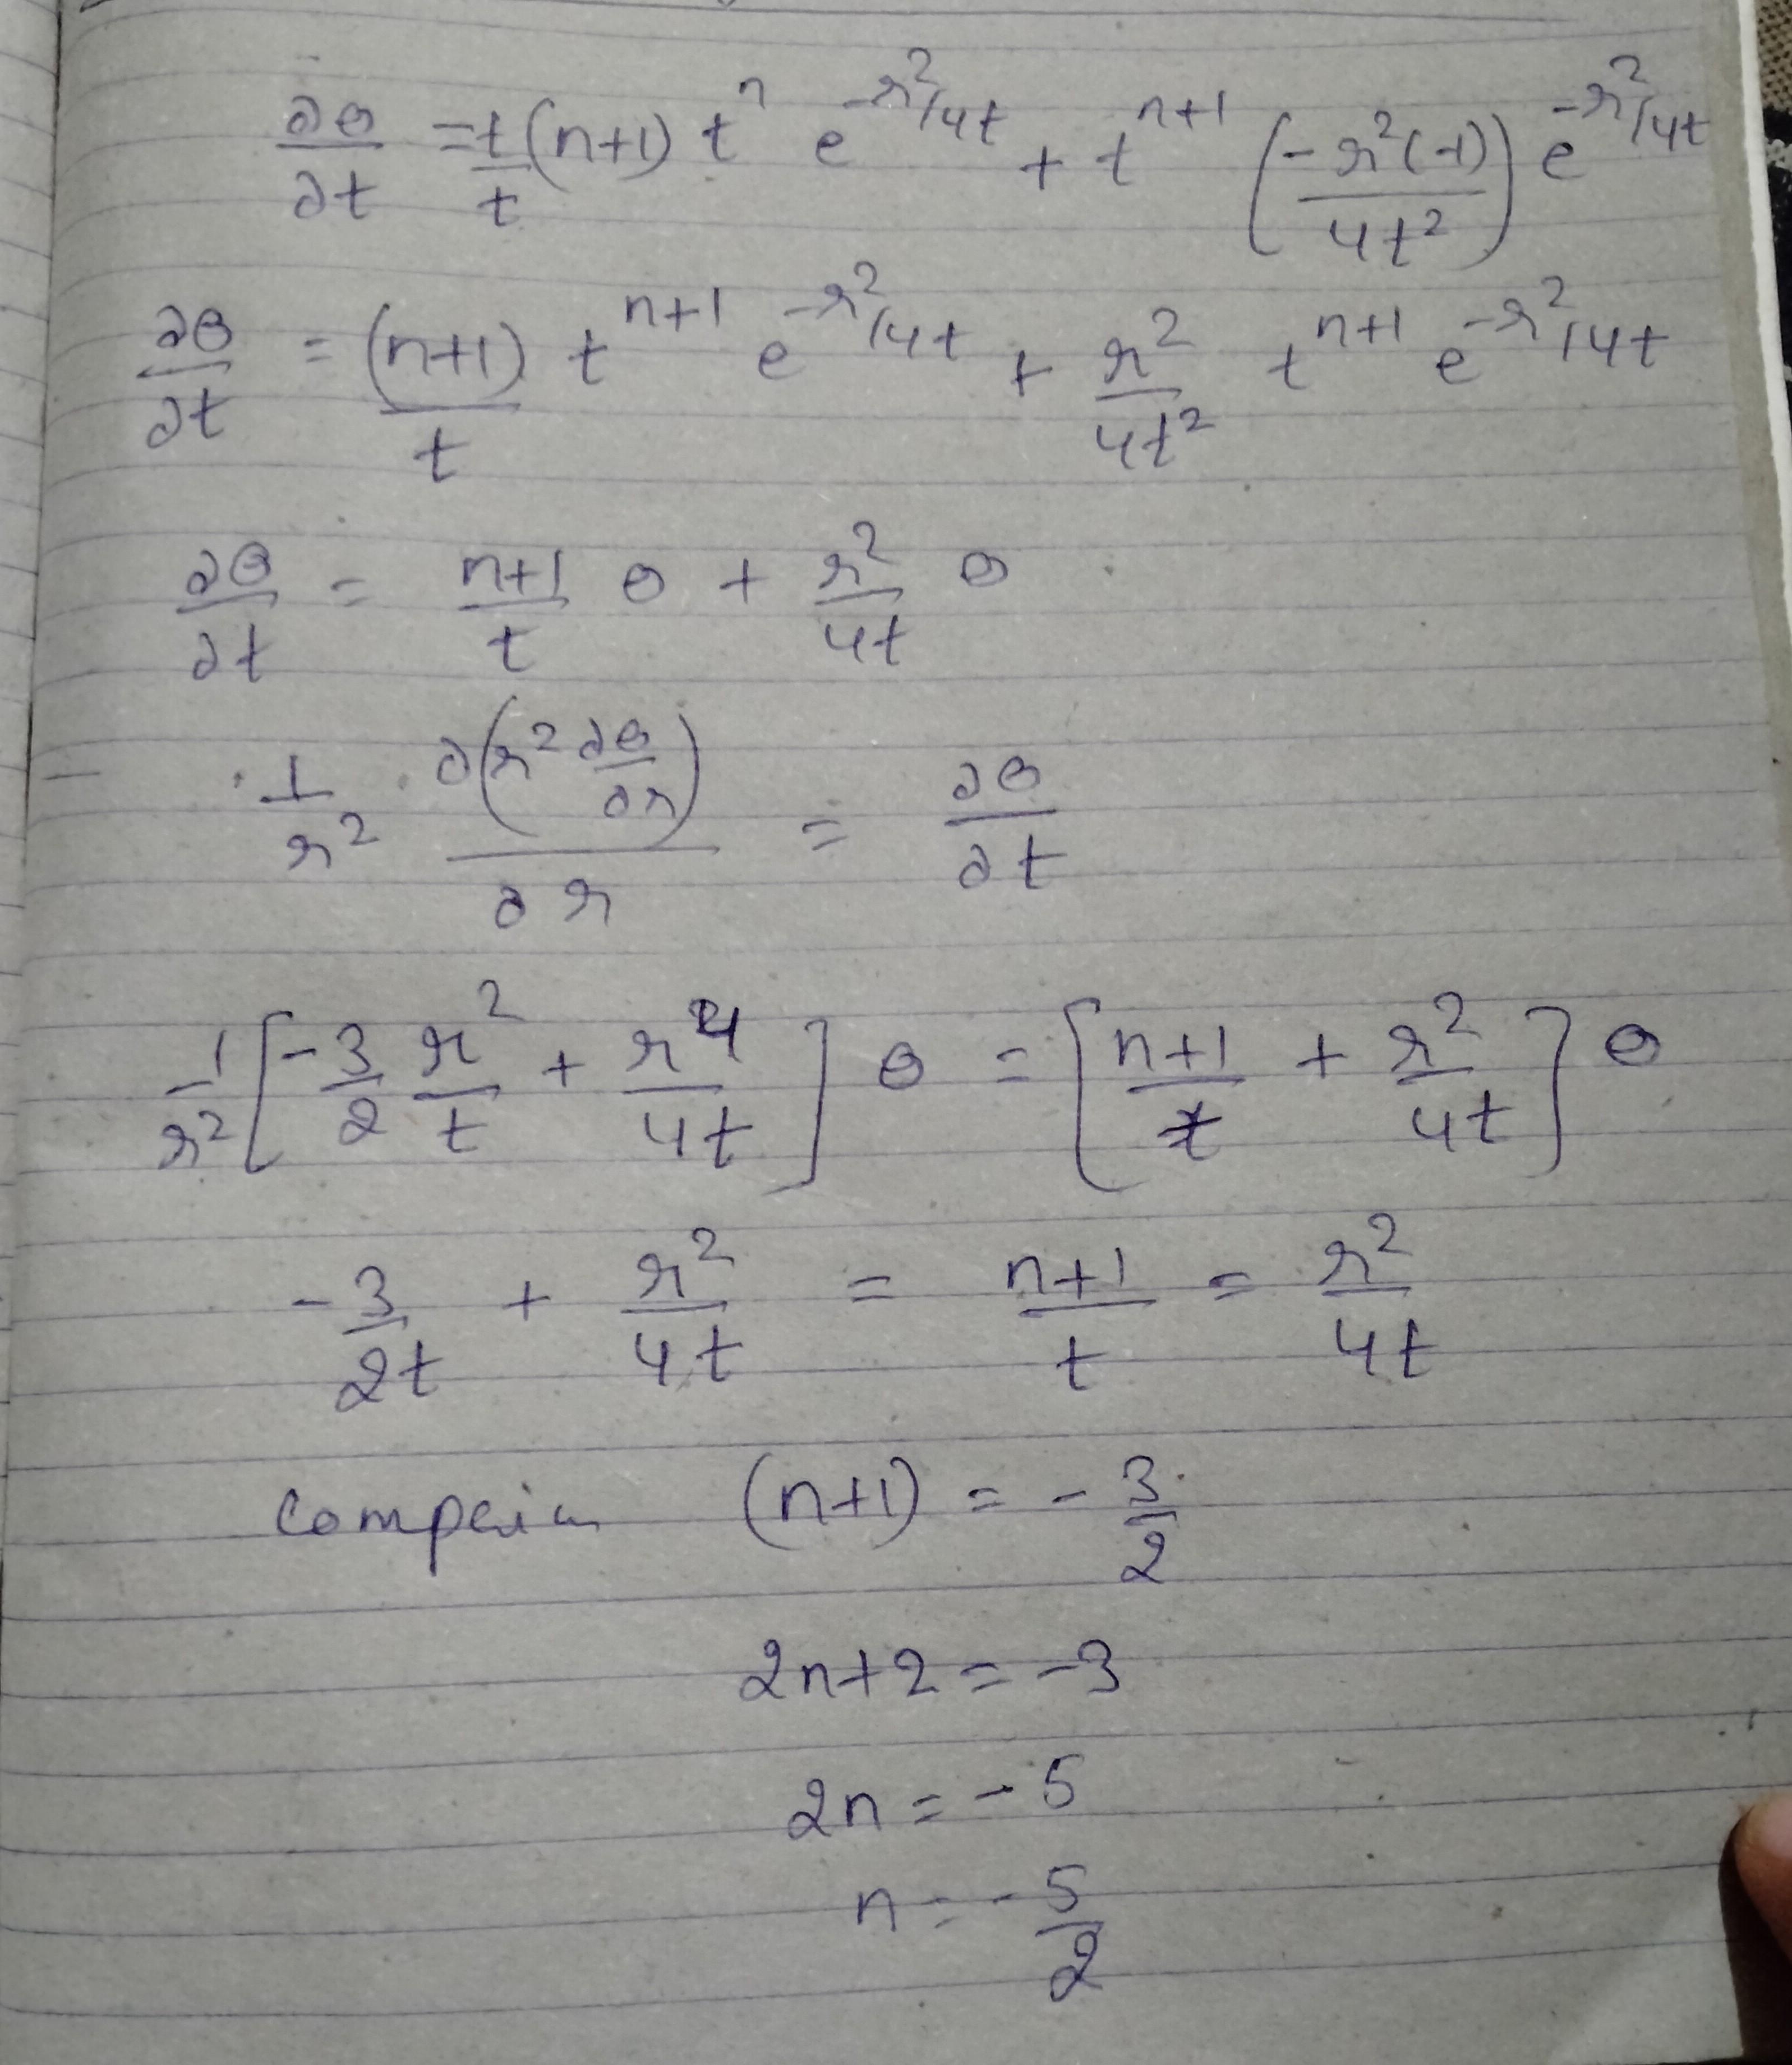 ∂θ/∂t = t/t (n+1) t^n e^(-r²/4t) + t^(n+1) (-r²(-1)/4t²) e^(-r²/4t)
∂θ/∂t = (n+1)/t t^(n+1) e^(-r²/4t) + r²/4t² t^(n+1) e^(-r²/4t)
∂θ/∂t = n+1/t θ + r²/4t θ
1/r² ∂(r² ∂θ/∂r)/∂r = ∂θ/∂t
1/r² [-3/2 r²/t + r⁴/4t] θ = [n+1/t + r²/4t] θ
-3/2t + r²/4t = n+1/t = r²/4t
(n+1) = -3/2
2n+2 = -3
2n = -5
n = -5/2